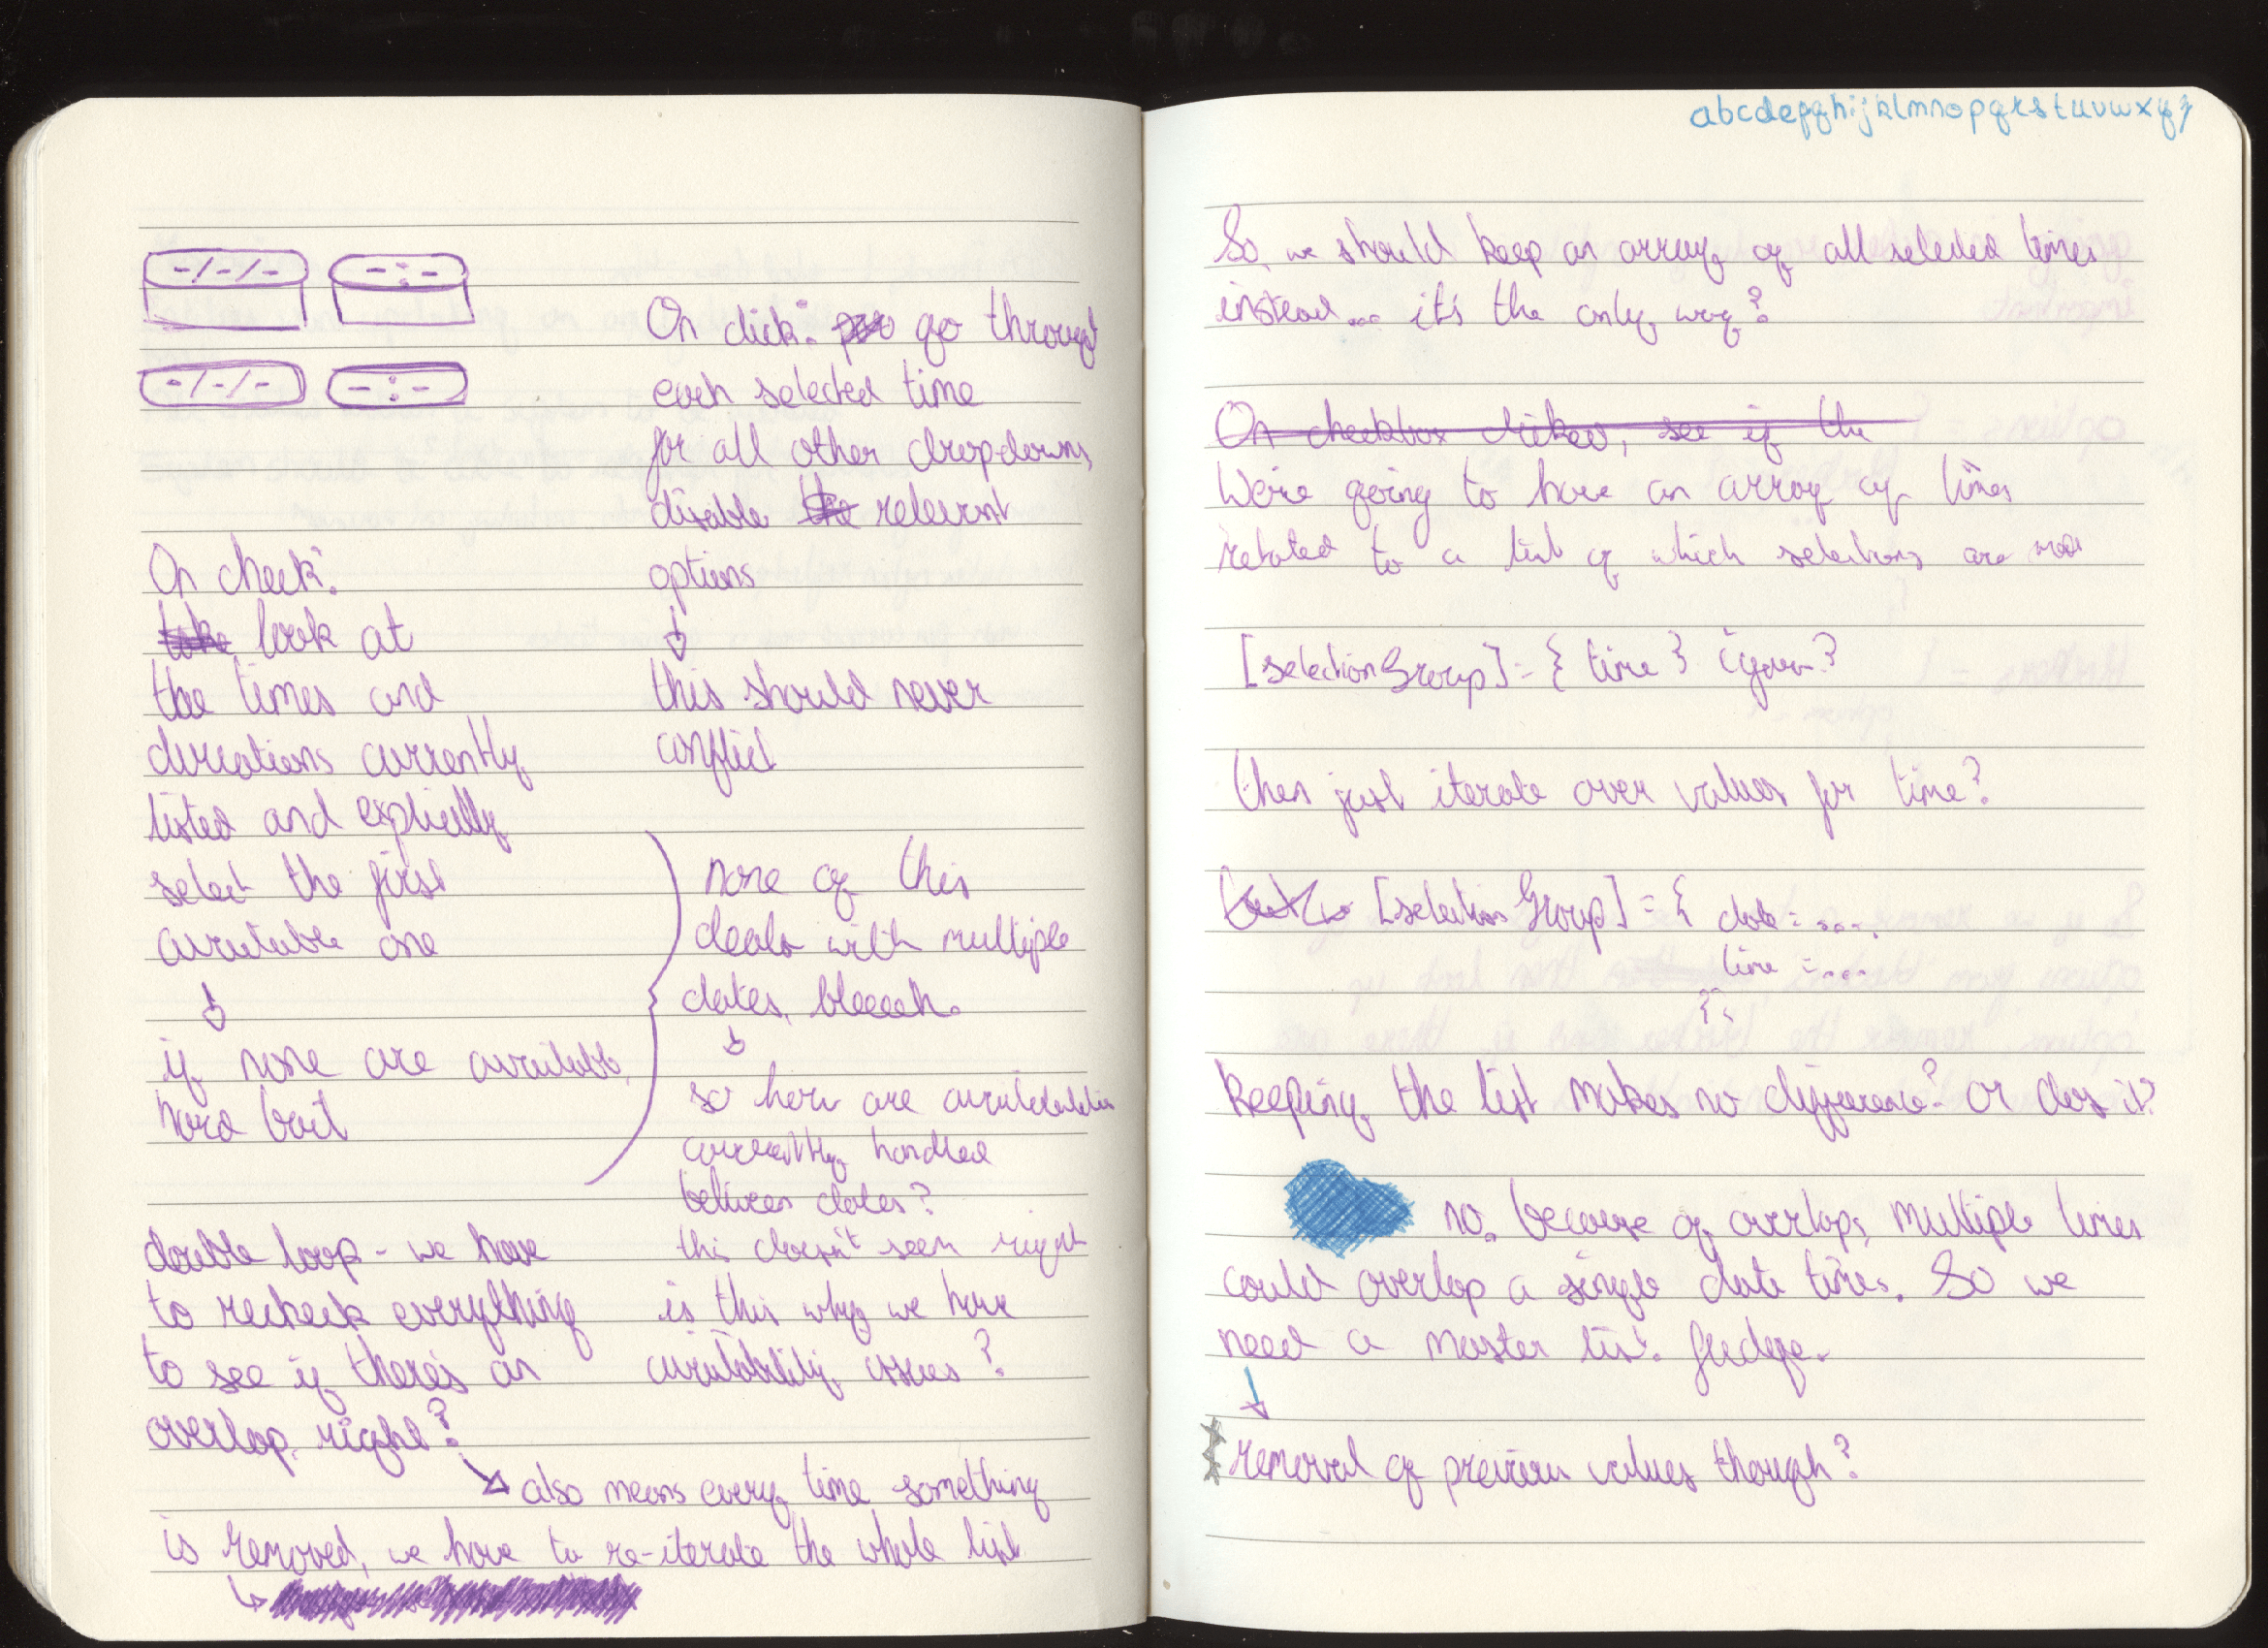 -/-/-  -:-
-/-/-  -:-
On check:
look at
the times and
durations currently
listed and explicitly
select the first
available one
↓
if none are available,
hard bail
double loop - we have
to recheck everything
to see if there's an
overlap, right?
↘ also means every time something
is removed, we have to re-iterate the whole list
↳
On click: go through
each selected time
for all other dropdowns,
disable the relevant
options
↓
this should never
conflict
none of this
deals with multiple
dates, bleeeh.
↓
so how are availabilities
currently handled
between dates?
this doesn't seem right
is this why we have
availability issues?
abcdefghijklmnopqrstuvwxyz
So, we should keep an array of all selected times
instead... it's the only way?
On checkbox clicked, see if the
We're going to have an array of times
related to a list of which selections are
[selectionGroup] = { time }
then just iterate over values for time?
[selectionGroup] = { date = ....
time = ....
}
keeping the list makes no difference? or does it?
no. because of overlaps, multiple times
could overlap a single date time. So we
need a master list. fledge.
↓
removal of previous values though?